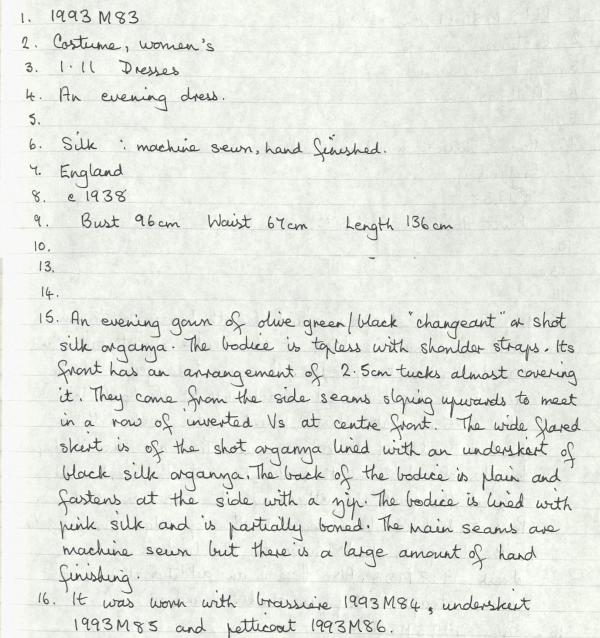 1. 1993 M83
2. Costume, women's
3. 1.11 Dresses
4. An evening dress.
5.
6. Silk : machine sewn, hand finished.
7. England
8. c 1938
9. Bust 96cm Waist 67cm Length 136cm
10.
13.
14.
15. An evening gown of olive green/black "changeant" or shot
silk organza. The bodice is topless with shoulder straps. Its
front has an arrangement of 2.5cm tucks almost covering
it. They come from the side seams sloping upwards to meet
in a row of inverted Vs at centre front. The wide flared
skirt is of the shot organza lined with an underskirt of
black silk organza. The back of the bodice is plain and
fastens at the side with a zip. The bodice is lined with
pink silk and is partially boned. The main seams are
machine sewn but there is a large amount of hand
finishing.
16. It was worn with brassiere 1993M84, underskirt
1993M85 and petticoat 1993M86.